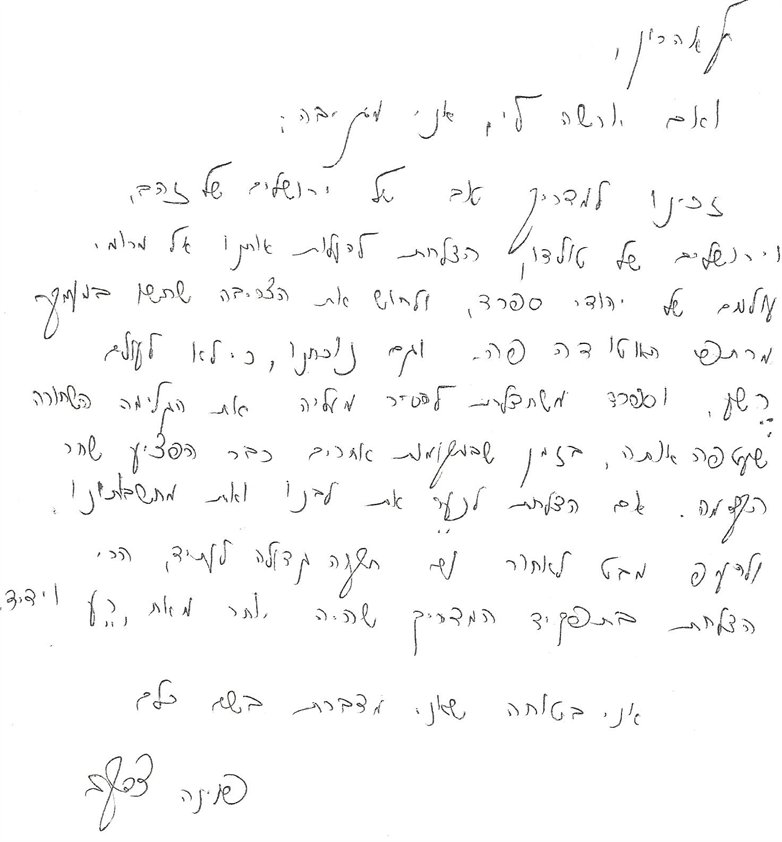 לאהרון,
ואם יורשה לי, אני מקריבה:
זכינו למדריך אב של ירושלים של זהב,
וירושלים של טולדו, הצלחת להעלות אותנו אל מרומי
עולמם של יהודי ספרד, ולחוש את הצריבה שחשו במעמקי
מרתפי האוטו דה פה. וגם נוכחנו, כי לא לעולם
רֶשַע, וספרד משתדלת להסיר מעליה את הגלימה השחורה
שעטפה אותה, בזמן שבמקומות אחרים כבר הפציע שחר
הקדמה. אם הצלחת לנער את לבנו ואת מחשבותינו
ולהעיף מבט לאחור עם תקוה גדולה לעתיד, הרי
הצלחת בתפקיד המדריך שהיה יותר מאח, רֵעַ וידיד.
אני בטוחה שאני מדברת בשם כולם
פנינה